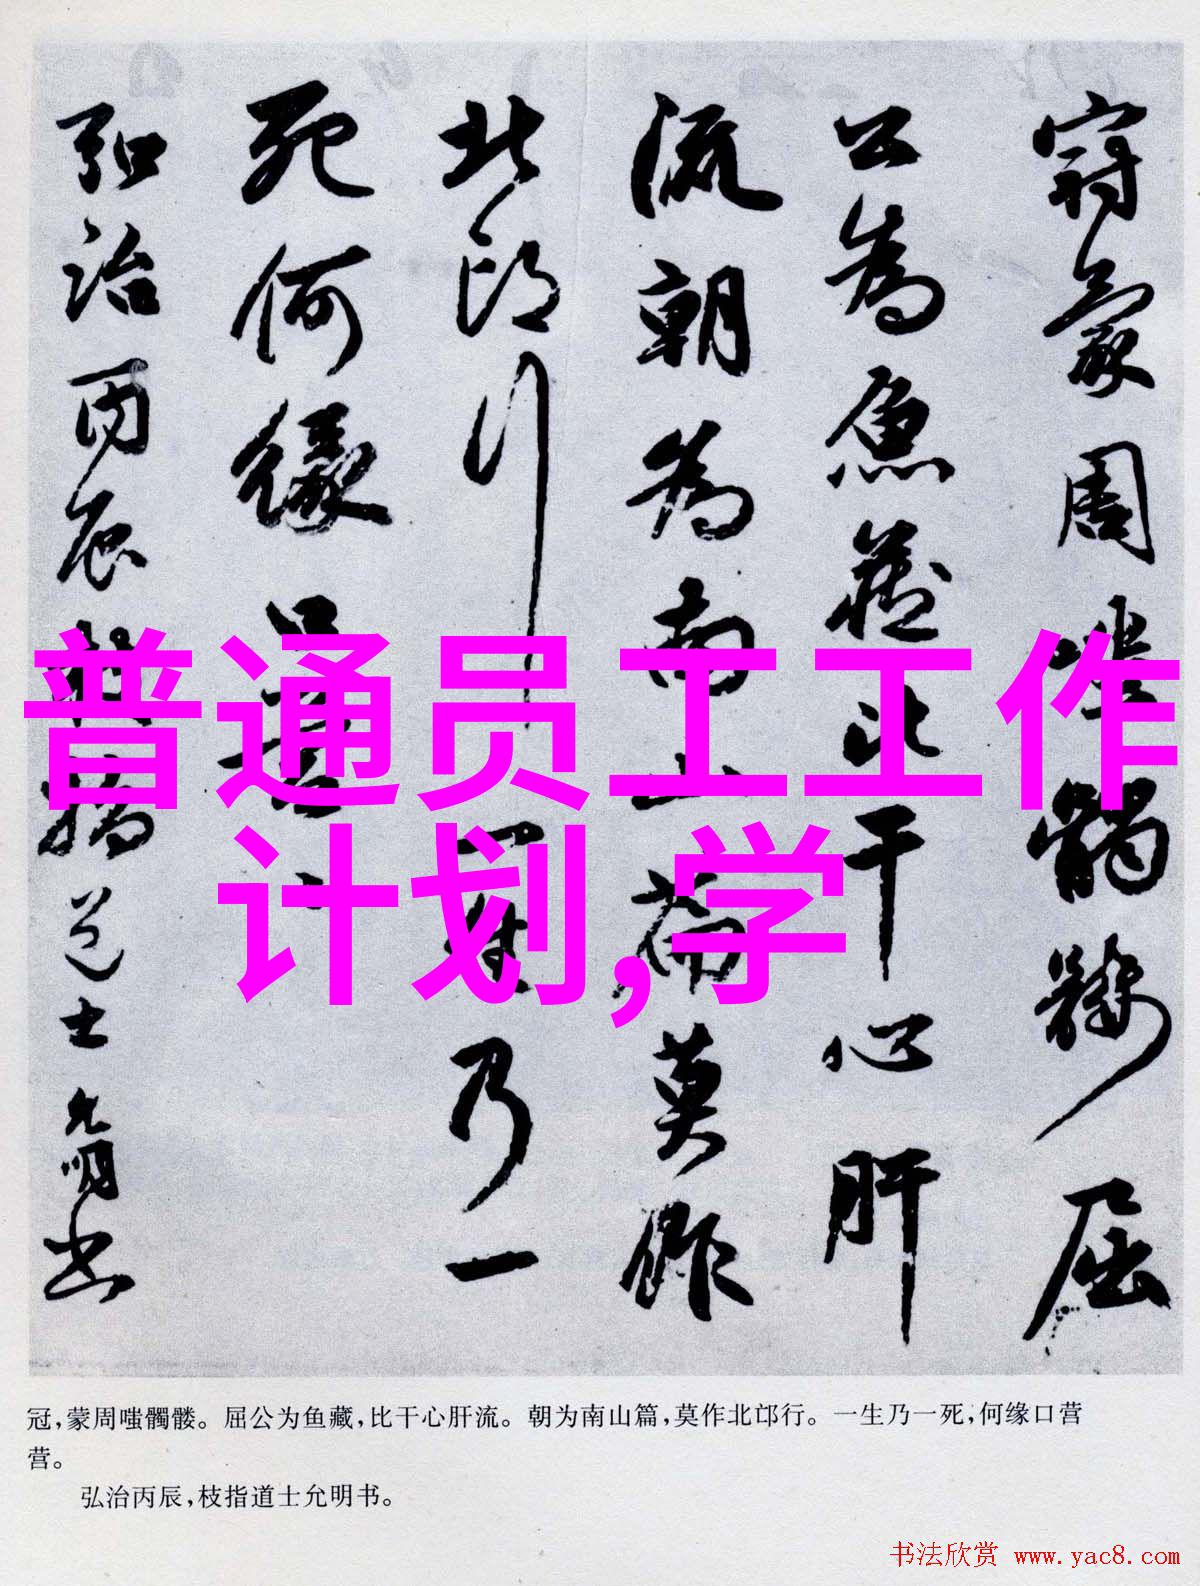 冠蒙周嗤髑髅屈
公为鱼藏比干心肝
流朝为南山篇莫作
北邙行一生乃一
死何缘
弘治丙辰枝指道士允明书
普通员工工作
计划,学
冠,蒙周嗤髑髅。屈公为鱼藏,比干心肝流。朝为南山篇,莫作北邙行。一生乃一死,何缘口营
营。
弘治丙辰,枝指道士允明书。
书法欣赏 www.yac8.com